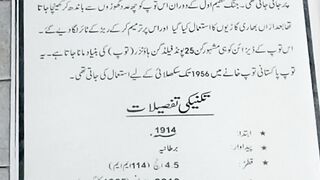 پر جاتی تھی۔ جنگ عظیم اول کے دوران اس توپ کو چھ عدد گھوڑوں سے باندھ کر کھینچا جاتا
تھا بعد ازاں بھاری گاڑیوں کا استعمال کیا گیا اور اس پر ترمیم کر کے ربڑ کے ٹائر لگا دیے گئے۔
اس توپ کے ڈیزائن کو ہی مشہور گن 25 پونڈ فیلڈ گن ہاؤٹزر (توپ) کی بنیاد مانا جاتا ہے۔ یہ
توپ پاکستانی توپ خانے میں 1956 تک سکھلائی کے لیے استعمال کی جاتی تھی۔
تکنیکی تفصیلات
★ ابتدا: 1914
★ پیداوار: برطانیہ
★ قطر: 4.5 انچ (114 ایم ایم)